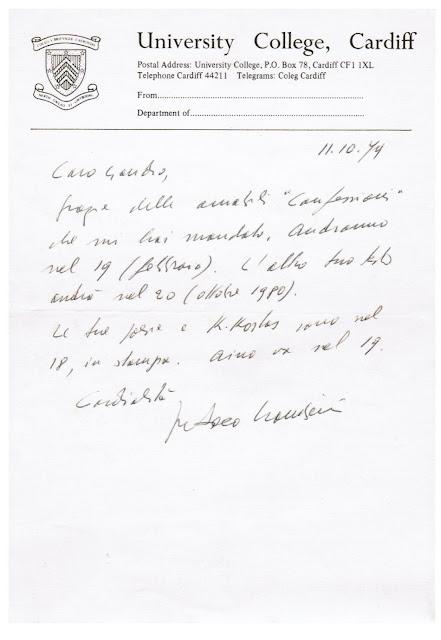 University College, Cardiff
Postal Address: University College, P.O. Box 78, Cardiff CF1 1XL
Telephone Cardiff 44211 Telegrams: Coleg Cardiff
From
Department of
11.10.79
Caro Sandro,
grazie delle amabili "Confessioni"
che mi hai mandato, Andranno
nel 19 (febbraio). L'altro tuo testo
andrà nel 20 (ottobre 1980).
Le tue poesie e K. Kostas sono nel
18, in stampa. va nel 19.
Cordialità